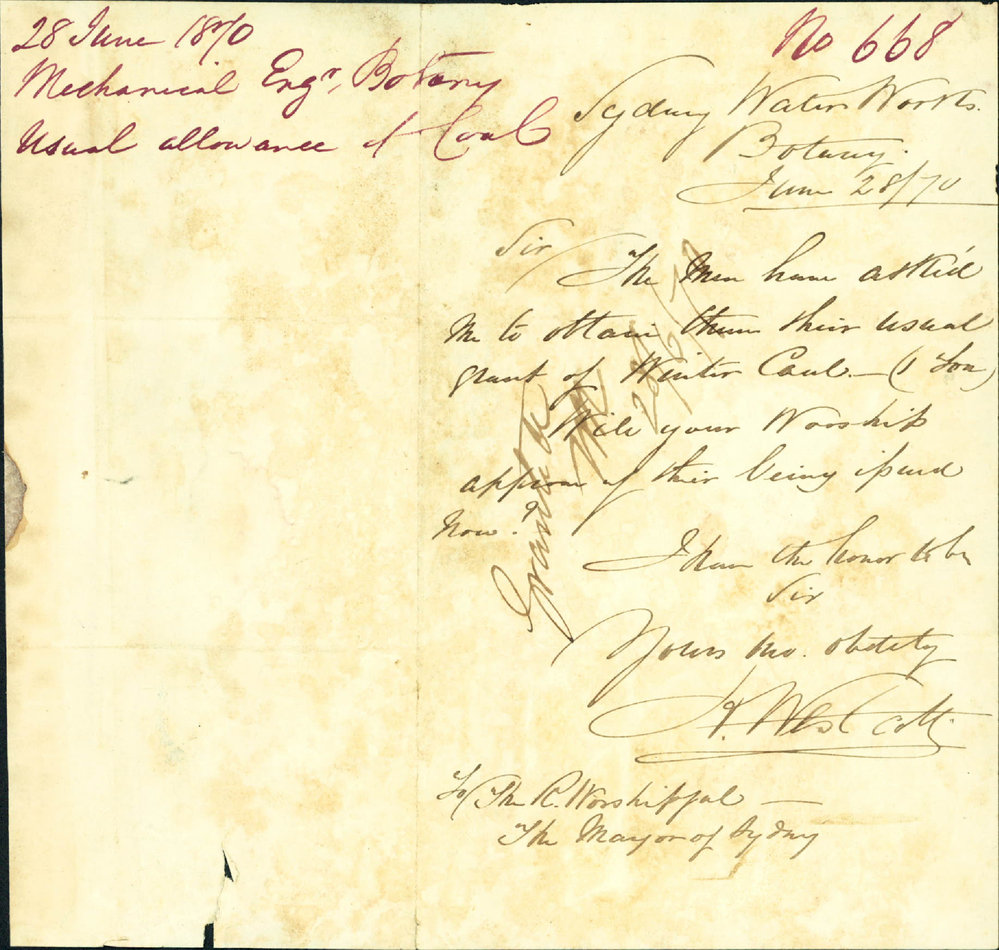 28 June 1870
Mechanical Engr. Botany
Usual allowance of Coal
No 668
Sydney Water Works.
Botany.
June 28/70
Sir/ The Men have ask'd
me to obtain them their usual
grant of Winter Coal — (1 Ton)
Will your Worship
approve of their being issued
now?
I have the honor to be
Sir
Yours mo. obdtly
H. Westcott
To/ The R. Worshipful —
The Mayor of Sydney
Granted